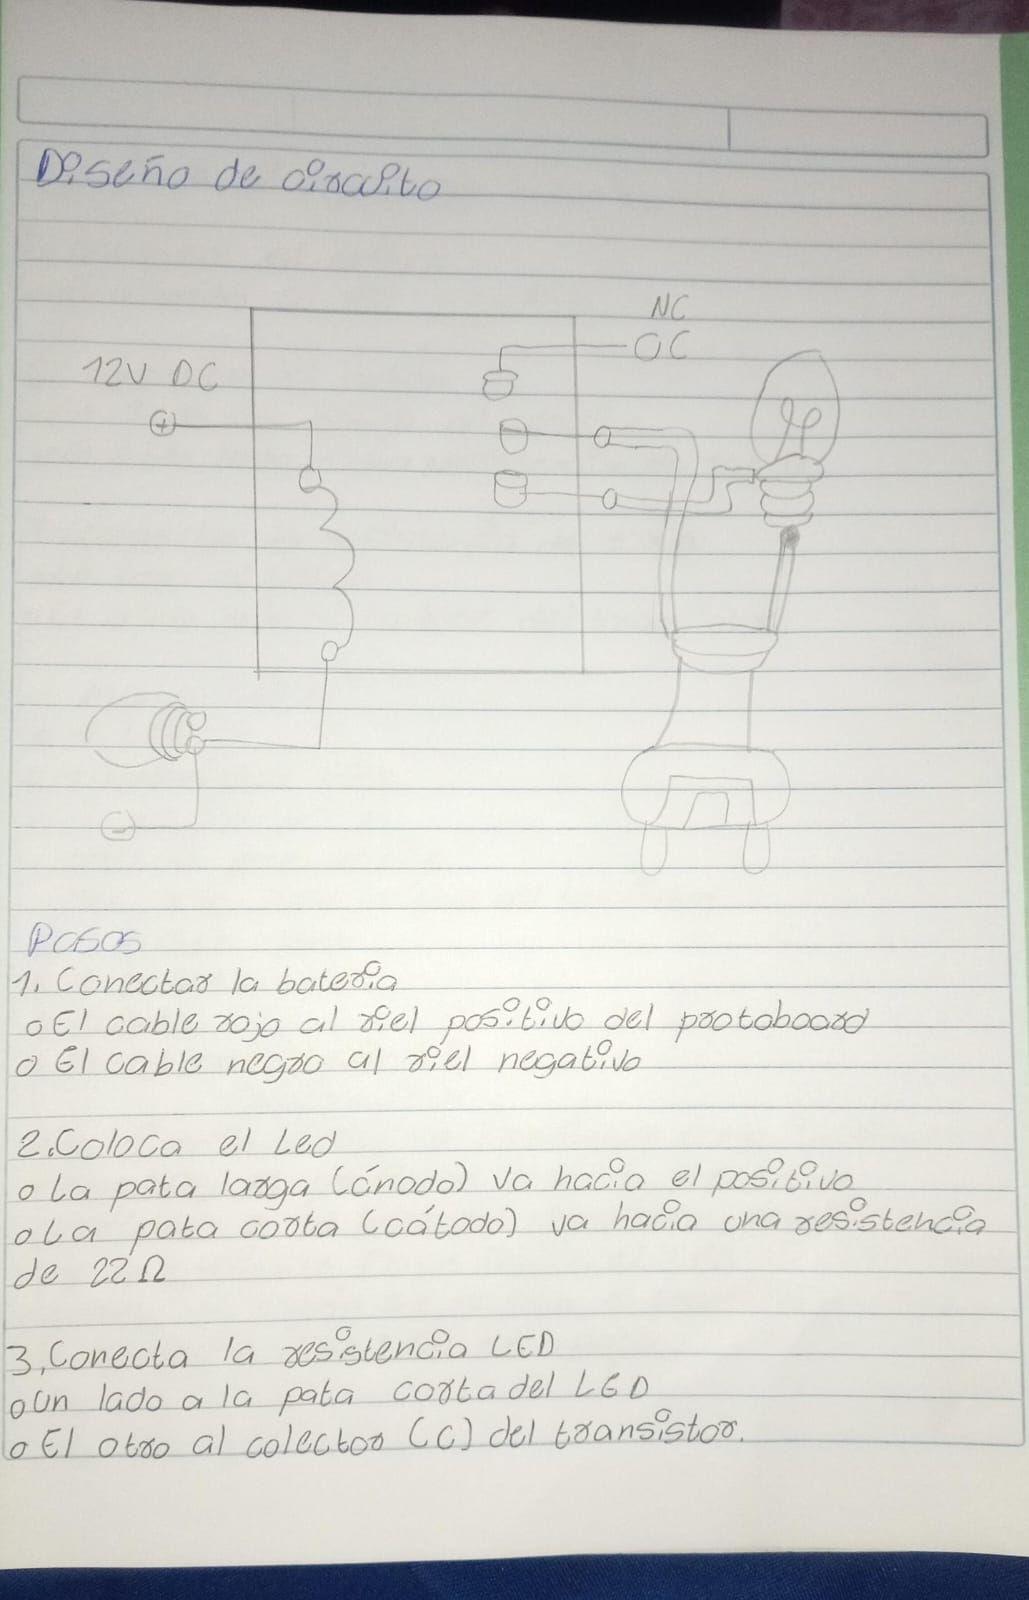 Diseño de circuito
NC
OC
12V DC
+
-
Pasos
1. Conectar la batería
o El cable rojo al riel positivo del protoboard
o El cable negro al riel negativo
2. Coloca el Led
o La pata larga (ánodo) va hacia el positivo
o La pata corta (cátodo) va hacia una resistencia
de 22Ω
3, Conecta la resistencia LED
o Un lado a la pata corta del LED
o El otro al colector (C) del transistor.